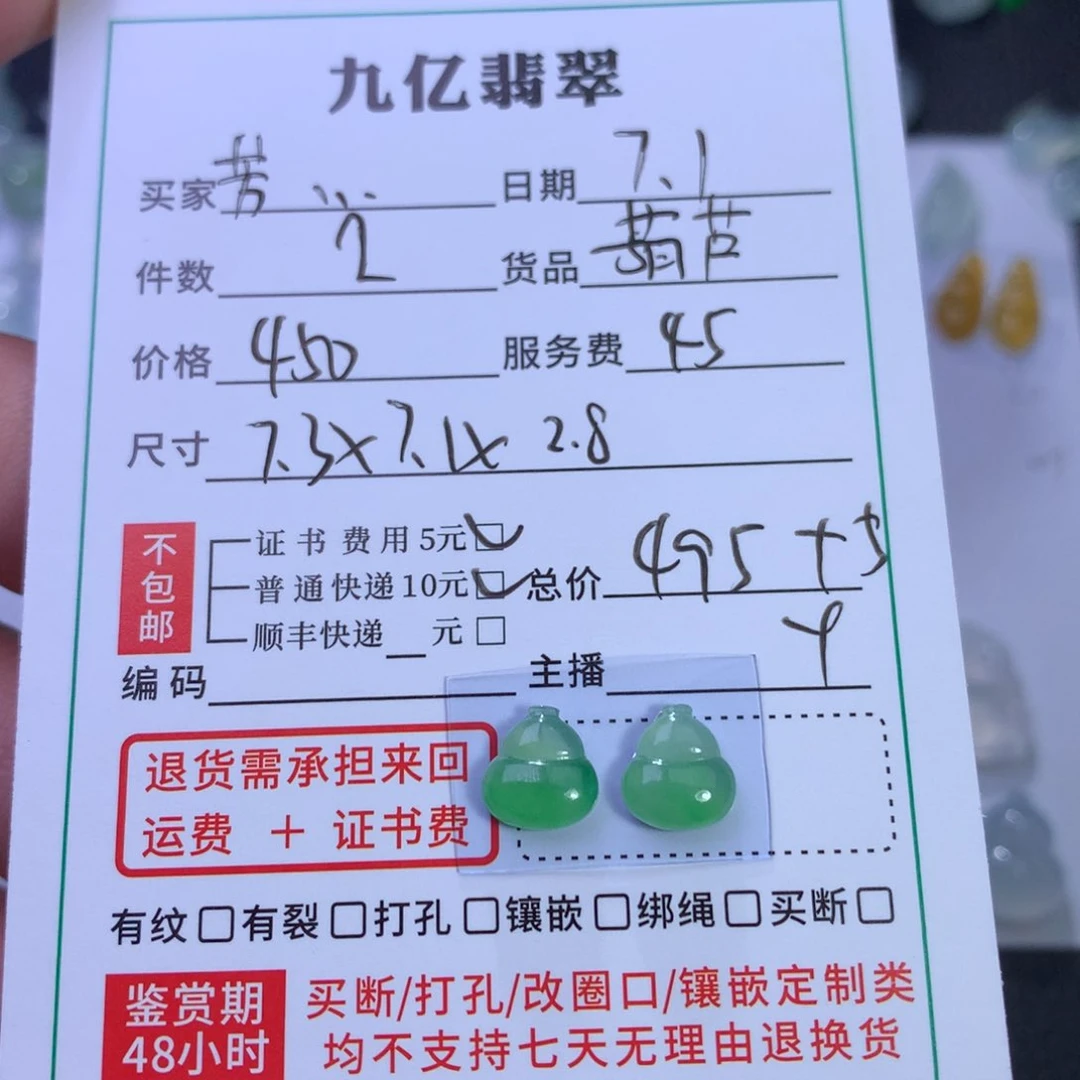 九亿翡翠
买家 芳... 日期 7.1
件数 2 货品 葫芦
价格 450 服务费 45
尺寸 7.3x7.1x 2.8
不包邮
证书费用5元
普通快递10元 总价 495+5
顺丰快递__元
编码 主播 Y
退货需承担来回
运费 + 证书费
有纹 有裂 打孔 镶嵌 绑绳 买断
鉴赏期 买断/打孔/改圈口/镶嵌定制类
48小时 均不支持七天无理由退换货